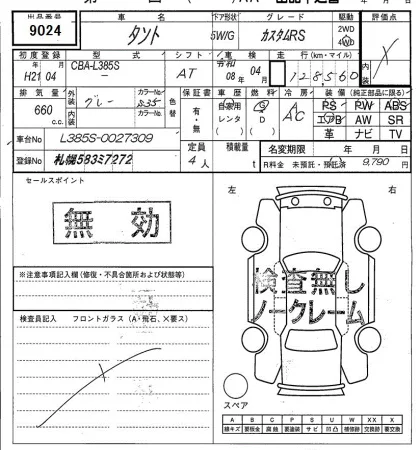 出品番号 車名 ドア形状 グレード 駆動 評価点
9024 タント 5W/G カスタムRS 2WD 4WD X
初度登録 型式 シフト 車検 走行(km・マイル)
H21年04月 CBA-L385S AT 令和08年04月 128560
排気量 外装 カラーNo. 色替 保証書 車歴 燃料 冷房 装備(純正部品に限る)
660c.c. グレー S35 有・無 自家用 レンタ G D AC PS PW ABS
内装 カラーNo. エアB AW SR
革 ナビ TV
車台No L385S-0027309 定員 積載量 名変期限 年 月 日
登録No 札幌583ミ7272 4人 t R料金 未預託・預託済 9,790円
セールスポイント
無効
左 右
※注意事項記入欄(修復・不具合箇所および状態等)
検査員記入 フロントガラス(A・飛石、X要ス)
検査無し
ノークレーム
スペア
A B C P S U W XX X
線キズ 要板金 腐蝕 要塗装 サビ 凹凸 補修跡 交換跡 要交換